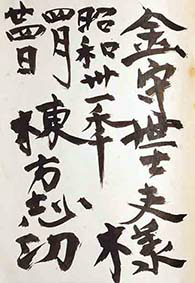 金守世士夫様
昭和卅一年
四月
廿四日
棟方志功